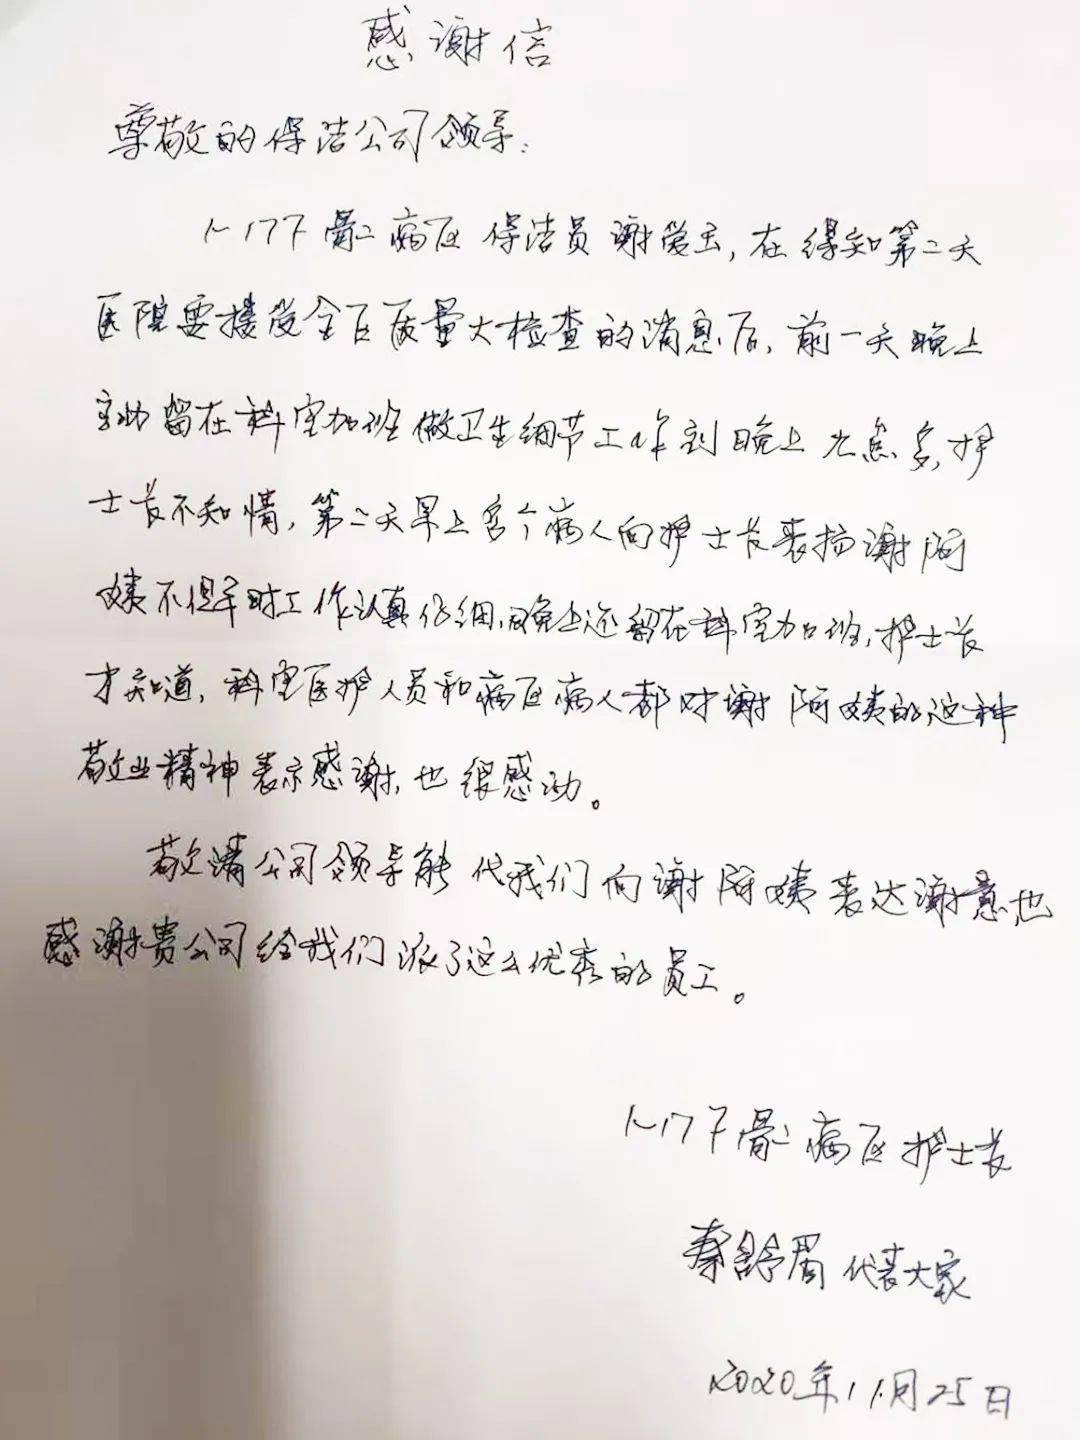 感谢信
尊敬的保洁公司领导:
1~17F骨二病区保洁员谢爱玉,在得知第二天
医院要接受全区质量大检查的消息后,前一天晚上
主动留在科室加班做卫生细节工作到晚上九点多,护
士长不知情,第二天早上多个病人向护士长表扬谢阿
姨不但平时工作认真仔细,晚上还留在科室加班,护士长
才知道,科室医护人员和病区病人都对谢阿姨的这种
敬业精神表示感谢,也很感动。
敬请公司领导能代我们向谢阿姨表达谢意,也
感谢贵公司给我们派了这么优秀的员工。
1~17F骨二病区护士长
秦舒眉代表大家
2020年11月25日